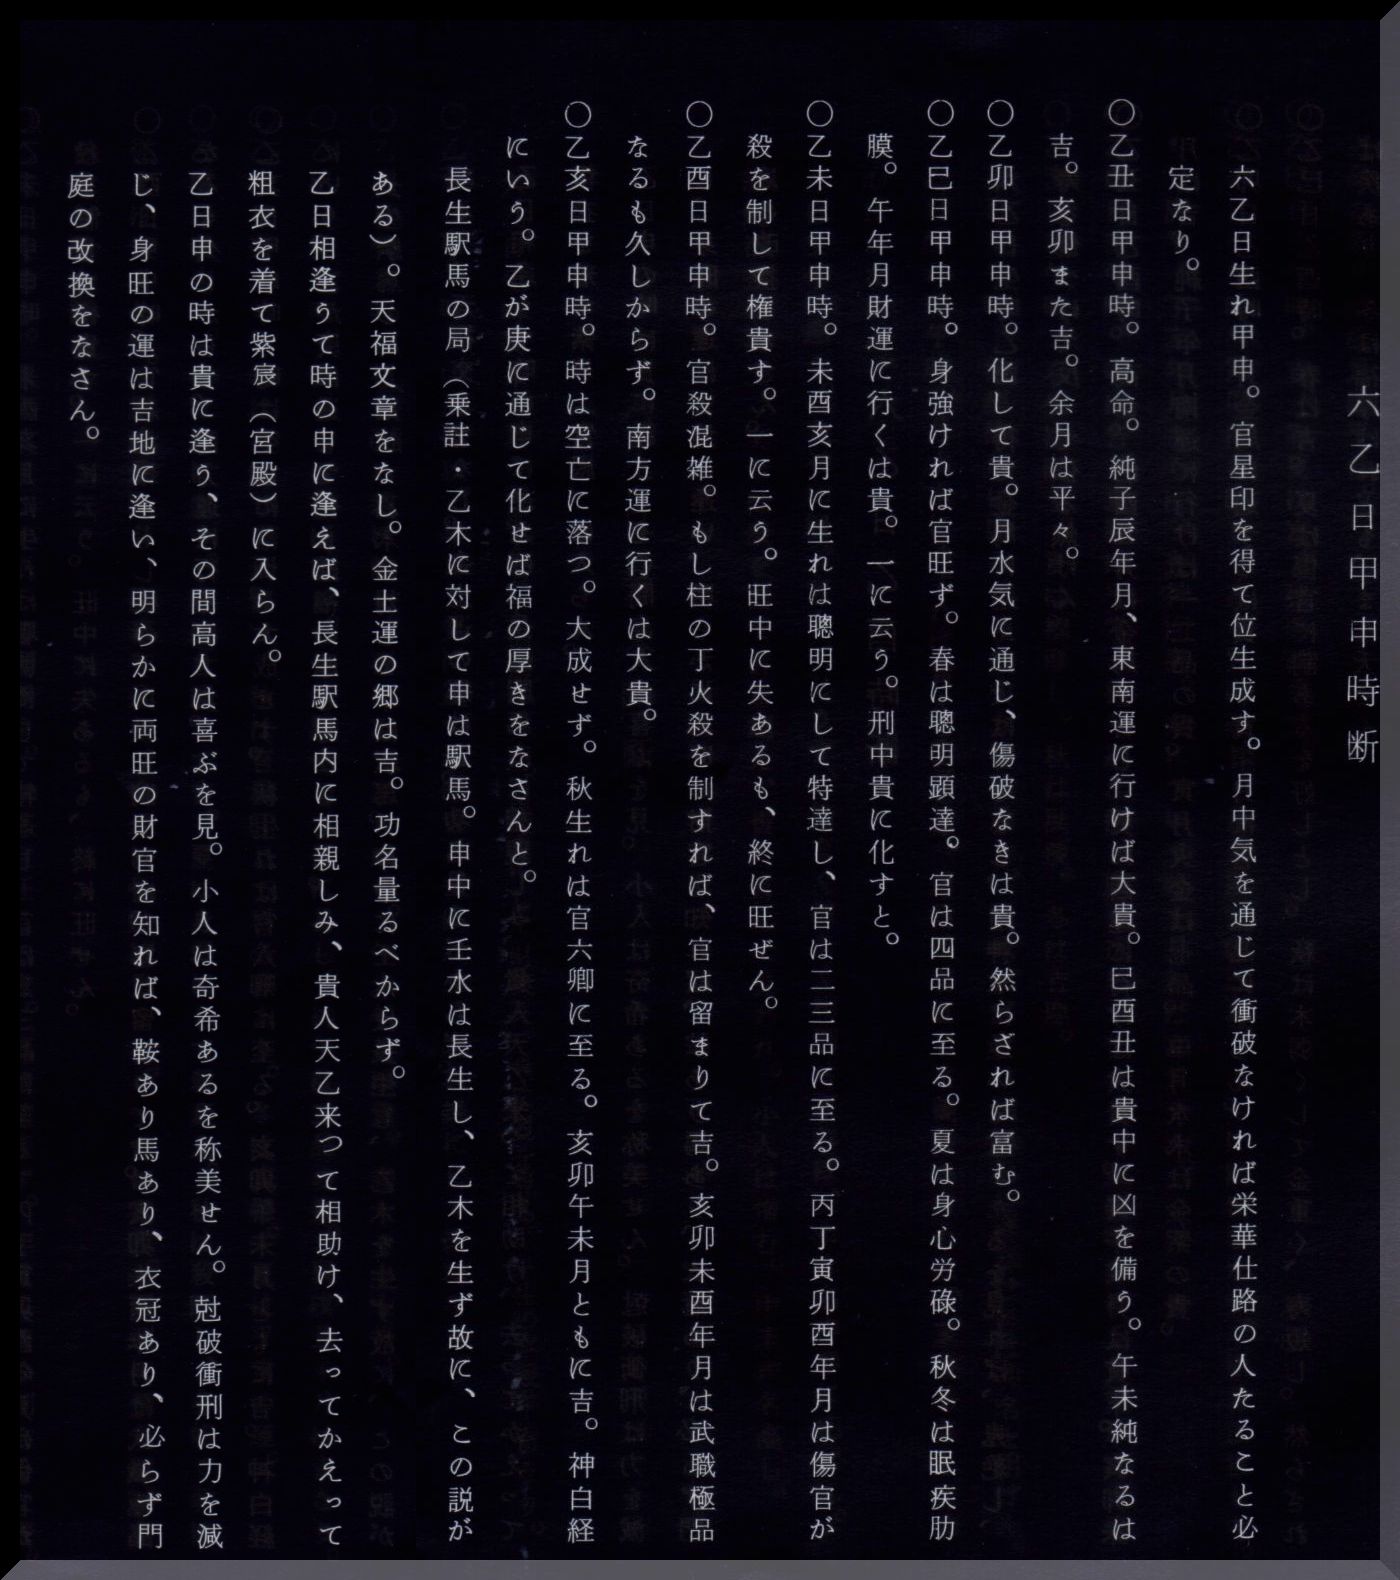 六乙日甲申時断
六乙日生れ甲申。官星印を得て位生成す。月中気を通じて衝破なければ栄華仕路の人たること必
定なり。
〇乙丑日甲申時。高命。純子辰年月、東南運に行けば大貴。巳酉丑は貴中に凶を備う。午未純なるは
吉。亥卯また吉。余月は平々。
〇乙卯日甲申時。化して貴。月水気に通じ、傷破なきは貴。然らざれば富む。
〇乙巳日甲申時。身強ければ官旺ず。春は聰明顕達。官は四品に至る。夏は身心労碌。秋冬は眠疾肋
膜。午年月財運に行くは貴。一に云う。刑中貴に化すと。
〇乙未日甲申時。未酉亥月に生れは聰明にして特達し、官は二三品に至る。丙丁寅卯酉年月は傷官が
殺を制して権貴す。一に云う。旺中に失あるも、終に旺ぜん。
〇乙酉日甲申時。官殺混雑。もし柱の丁火殺を制すれば、官は留まりて吉。亥卯未酉年月は武職極品
なるも久しからず。南方運に行くは大貴。
〇乙亥日甲申時。時は空亡に落つ。大成せず。秋生れは官六卿に至る。亥卯午未月ともに吉。神白経
にいう。乙が庚に通じて化せば福の厚きをなさんと。
長生駅馬の局（乗註・乙木に対して申は駅馬。申中に壬水は長生し、乙木を生ず故に、この説が
ある）。天福文章をなし。金土運の郷は吉。功名量るべからず。
乙日相逢うて時の申に逢えば、長生駅馬内に相親しみ、貴人天乙来つて相助け、去ってかえって
粗衣を着て紫宸（宮殿）に入らん。
乙日申の時は貴に逢う、その間高人は喜ぶを見。小人は奇希あるを称美せん。尅破衝刑は力を減
じ、身旺の運は吉地に逢い、明らかに両旺の財官を知れば、鞍あり馬あり、衣冠あり、必らず門
庭の改換をなさん。